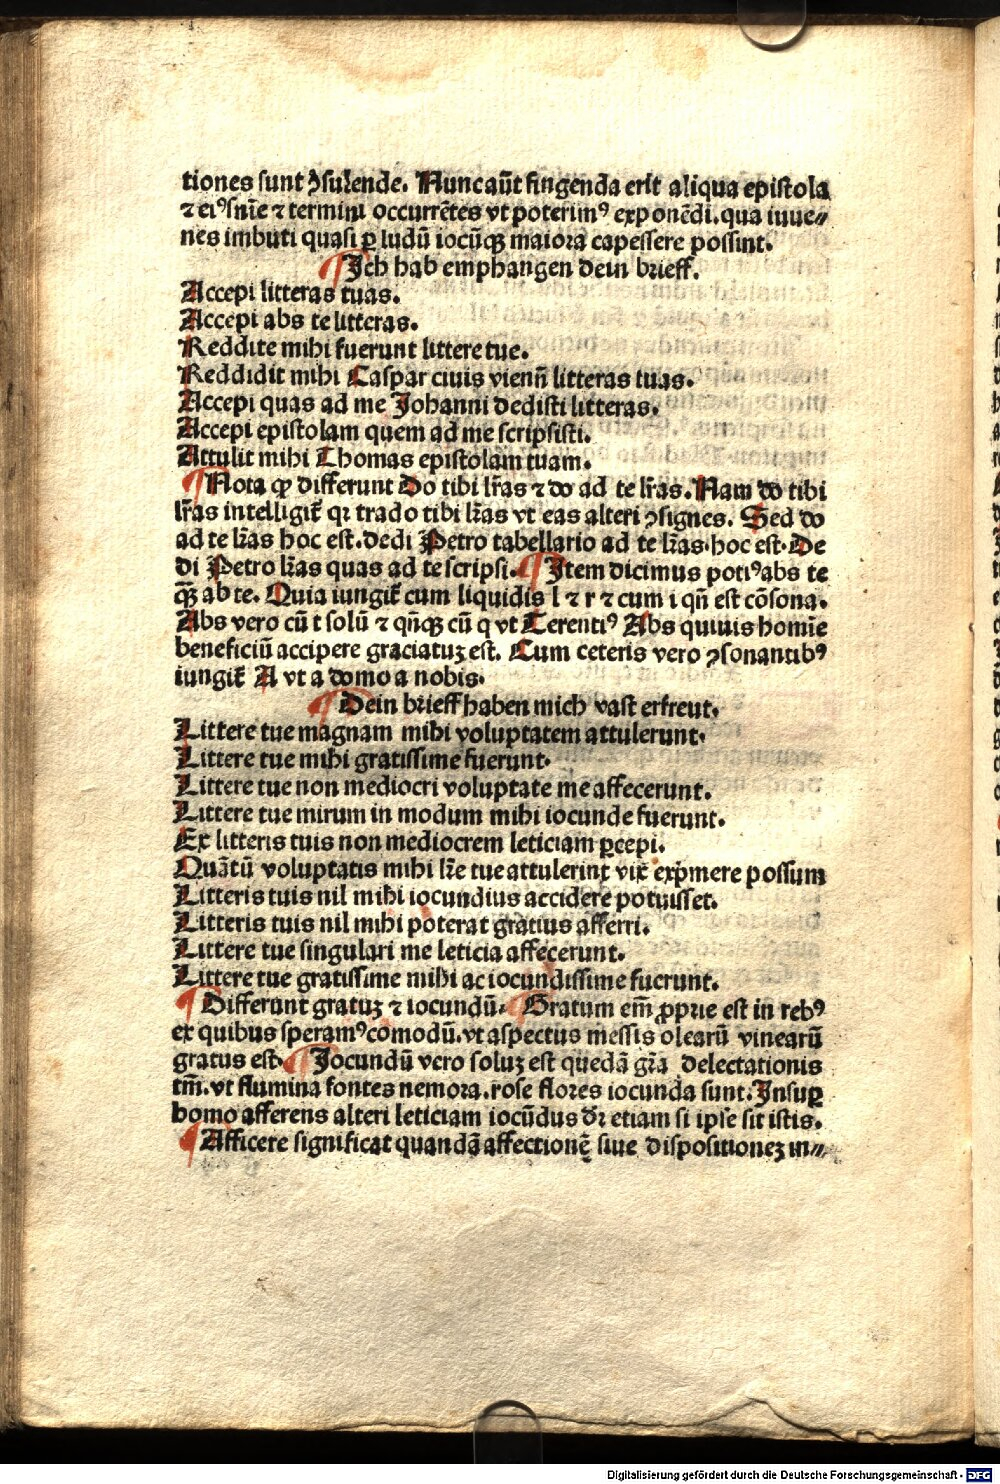 tiones sunt ꝯsulende. Nunc aūt fingenda erit aliqua epistola
⁊ eiꝰ sn̄ie ⁊ termini occurrētes vt poterimꝰ exponēdi. qua iuue⸗
nes imbuti quasi ꝑ ludū iocūqꝫ maiora capessere possint.
¶ Ich hab emphangen dein brieff.
Accepi litteras tuas.
Accepi abs te litteras.
Reddite mihi fuerunt littere tue.
Reddidit mihi Caspar ciuis vienn̄ litteras tuas.
Accepi quas ad me Johanni dedisti litteras.
Accepi epistolam quem ad me scripsisti.
Attulit mihi Thomas epistolam tuam.
¶ Nota ꝙ differunt Do tibi lr̄as ⁊ do ad te lr̄as. Nam do tibi
lr̄as intelligit᷑ qꝛ trado tibi lr̄as vt eas alteri ꝯsignes. Sed do
ad te lr̄as hoc est. dedi Petro tabellario ad te lr̄as. hoc est. De
di Petro lr̄as quas ad te scripsi. ¶ Item dicimus potiꝰ abs te
qꝫ ab te. Quia iungit᷑ cum liquidis l ⁊ r ⁊ cum i qn̄ est cōsona.
Abs vero cū t solū ⁊ qn̄qꝫ cū q vt Terentiꝰ Abs quiuis homīe
beneficiū accipere graciatuꝫ est. Cum ceteris vero ꝯsonantibꝰ
iungit᷑ A vt a domo a nobis.
¶ Dein brieff haben mich vast erfreut.
Littere tue magnam mihi voluptatem attulerunt.
Littere tue mihi gratissime fuerunt.
Littere tue non mediocri voluptate me affecerunt.
Littere tue mirum in modum mihi iocunde fuerunt.
Ex litteris tuis non mediocrem leticiam ꝑcepi.
Quātū voluptatis mihi lr̄e tue attulerint vix exp̄mere possum
Litteris tuis nil mihi iocundius accidere potuisset.
Litteris tuis nil mihi poterat gratius afferri.
Littere tue singulari me leticia affecerunt.
Littere tue gratissime mihi ac iocundissime fuerunt.
¶ Differunt gratuꝫ ⁊ iocundū. ¶ Gratum em̄ ꝓprie est in rebꝰ
ex quibus speramꝰ comodū. vt aspectus messis olearū vinearū
gratus est. ¶ Jocundū vero soluꝫ est quedā gr̄a delectationis
tm̄. vt flumina fontes nemora. rose flores iocunda sunt. Insuꝑ
homo afferens alteri leticiam iocūdus dr̄ etiam si ipse sit istis.
¶ Afficere significat quandā affectionē siue dispositioneꝫ in⸗
Digitalisierung gefördert durch die Deutsche Forschungsgemeinschaft - DFG